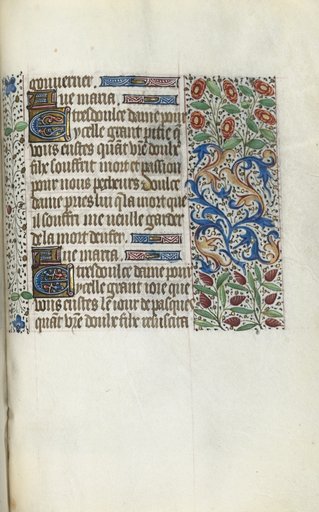 gouverner.
Aue maria.
Tresdoulce dame pour
ycelle grant pitie q̄
vous eustes quāt vr̄e doulx
filz souffrit mort et passion
pour nous pecheurs. Doulce
dame pries luy q̄ la mort que
il souffri me veuille garder
de la mort denfer.
Aue maria.
Tresdoulce dame pour
ycelle grant ioie que
vous eustes le iour de pasques
quāt vr̄e doulx filz resuscita